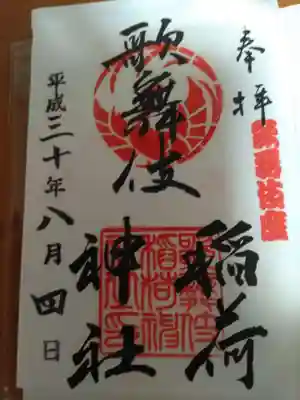 奉拝
歌舞伎座
歌舞伎
稲荷
神社
平成三十年八月四日